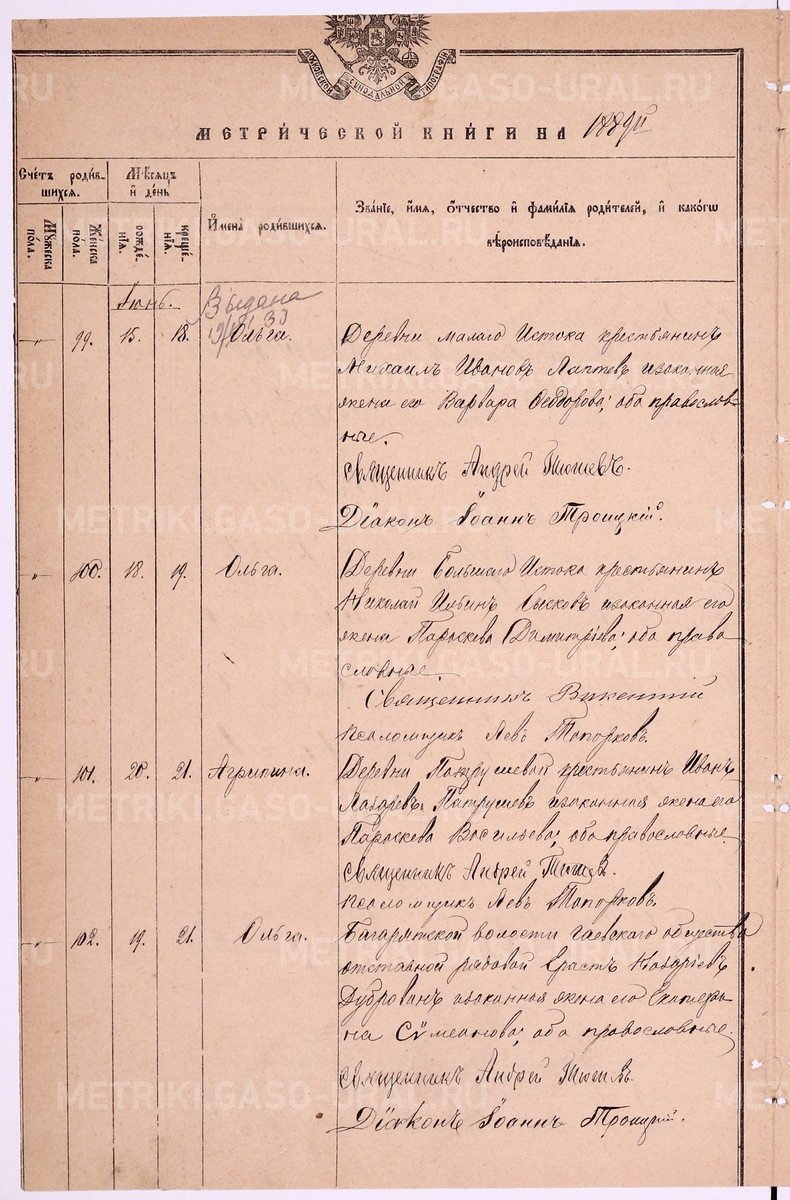 МЕТРИ́ЧЕСКОЙ КНИ́ГИ НА 1889й
Сче́тъ роди́в-
шихся.
Мѣсяцъ
и́ де́нь
Му́жеска
по́ла.
Же́нска
по́ла.
рожде́-
нїя.
креще́-
нїя.
И́мена роди́вшихся.
Зва́нїе, и́мя, о́тчество и́ фами́лїя роди́телей, и́ како́гѡ
вѣроисповѣ́данїя.
Іюнь.
Выдана
99. 15. 18. Ольга.
Деревни малаго Истока крестьянинъ
Михаилъ Ивановъ Лаптевъ изаконная
жена его Варвара Ѳеодорова; оба православ-
ные.
Священникъ Андрей
Дїаконъ Іоаннъ Троицкій.
100. 18. 19. Ольга.
Деревни Большаго Истока крестьянинъ
Николай Ильинъ изаконная его
жена Параскева Димитріева; оба право
славные.
Священникъ Викентій
Псаломщикъ Левъ Топорковъ.
101. 20. 21. Агрипина.
Деревни Патрушевой крестьянинъ Иванъ
Лазаревъ Патрушевъ изаконная жена его
Параскева Васильева; оба православные.
Священникъ Андрей
Псаломщикъ Левъ Топорковъ.
102. 19. 21. Ольга.
Багарятской волости гаевскаго общества
отставной рядовой Ерастъ Назарьевъ
изаконная жена его Екатери-
на Сѵмеонова; оба православные.
Священникъ Андрей
Дїаконъ Іоаннъ Троицкій.
METRIKI.GASO-URAL.RU